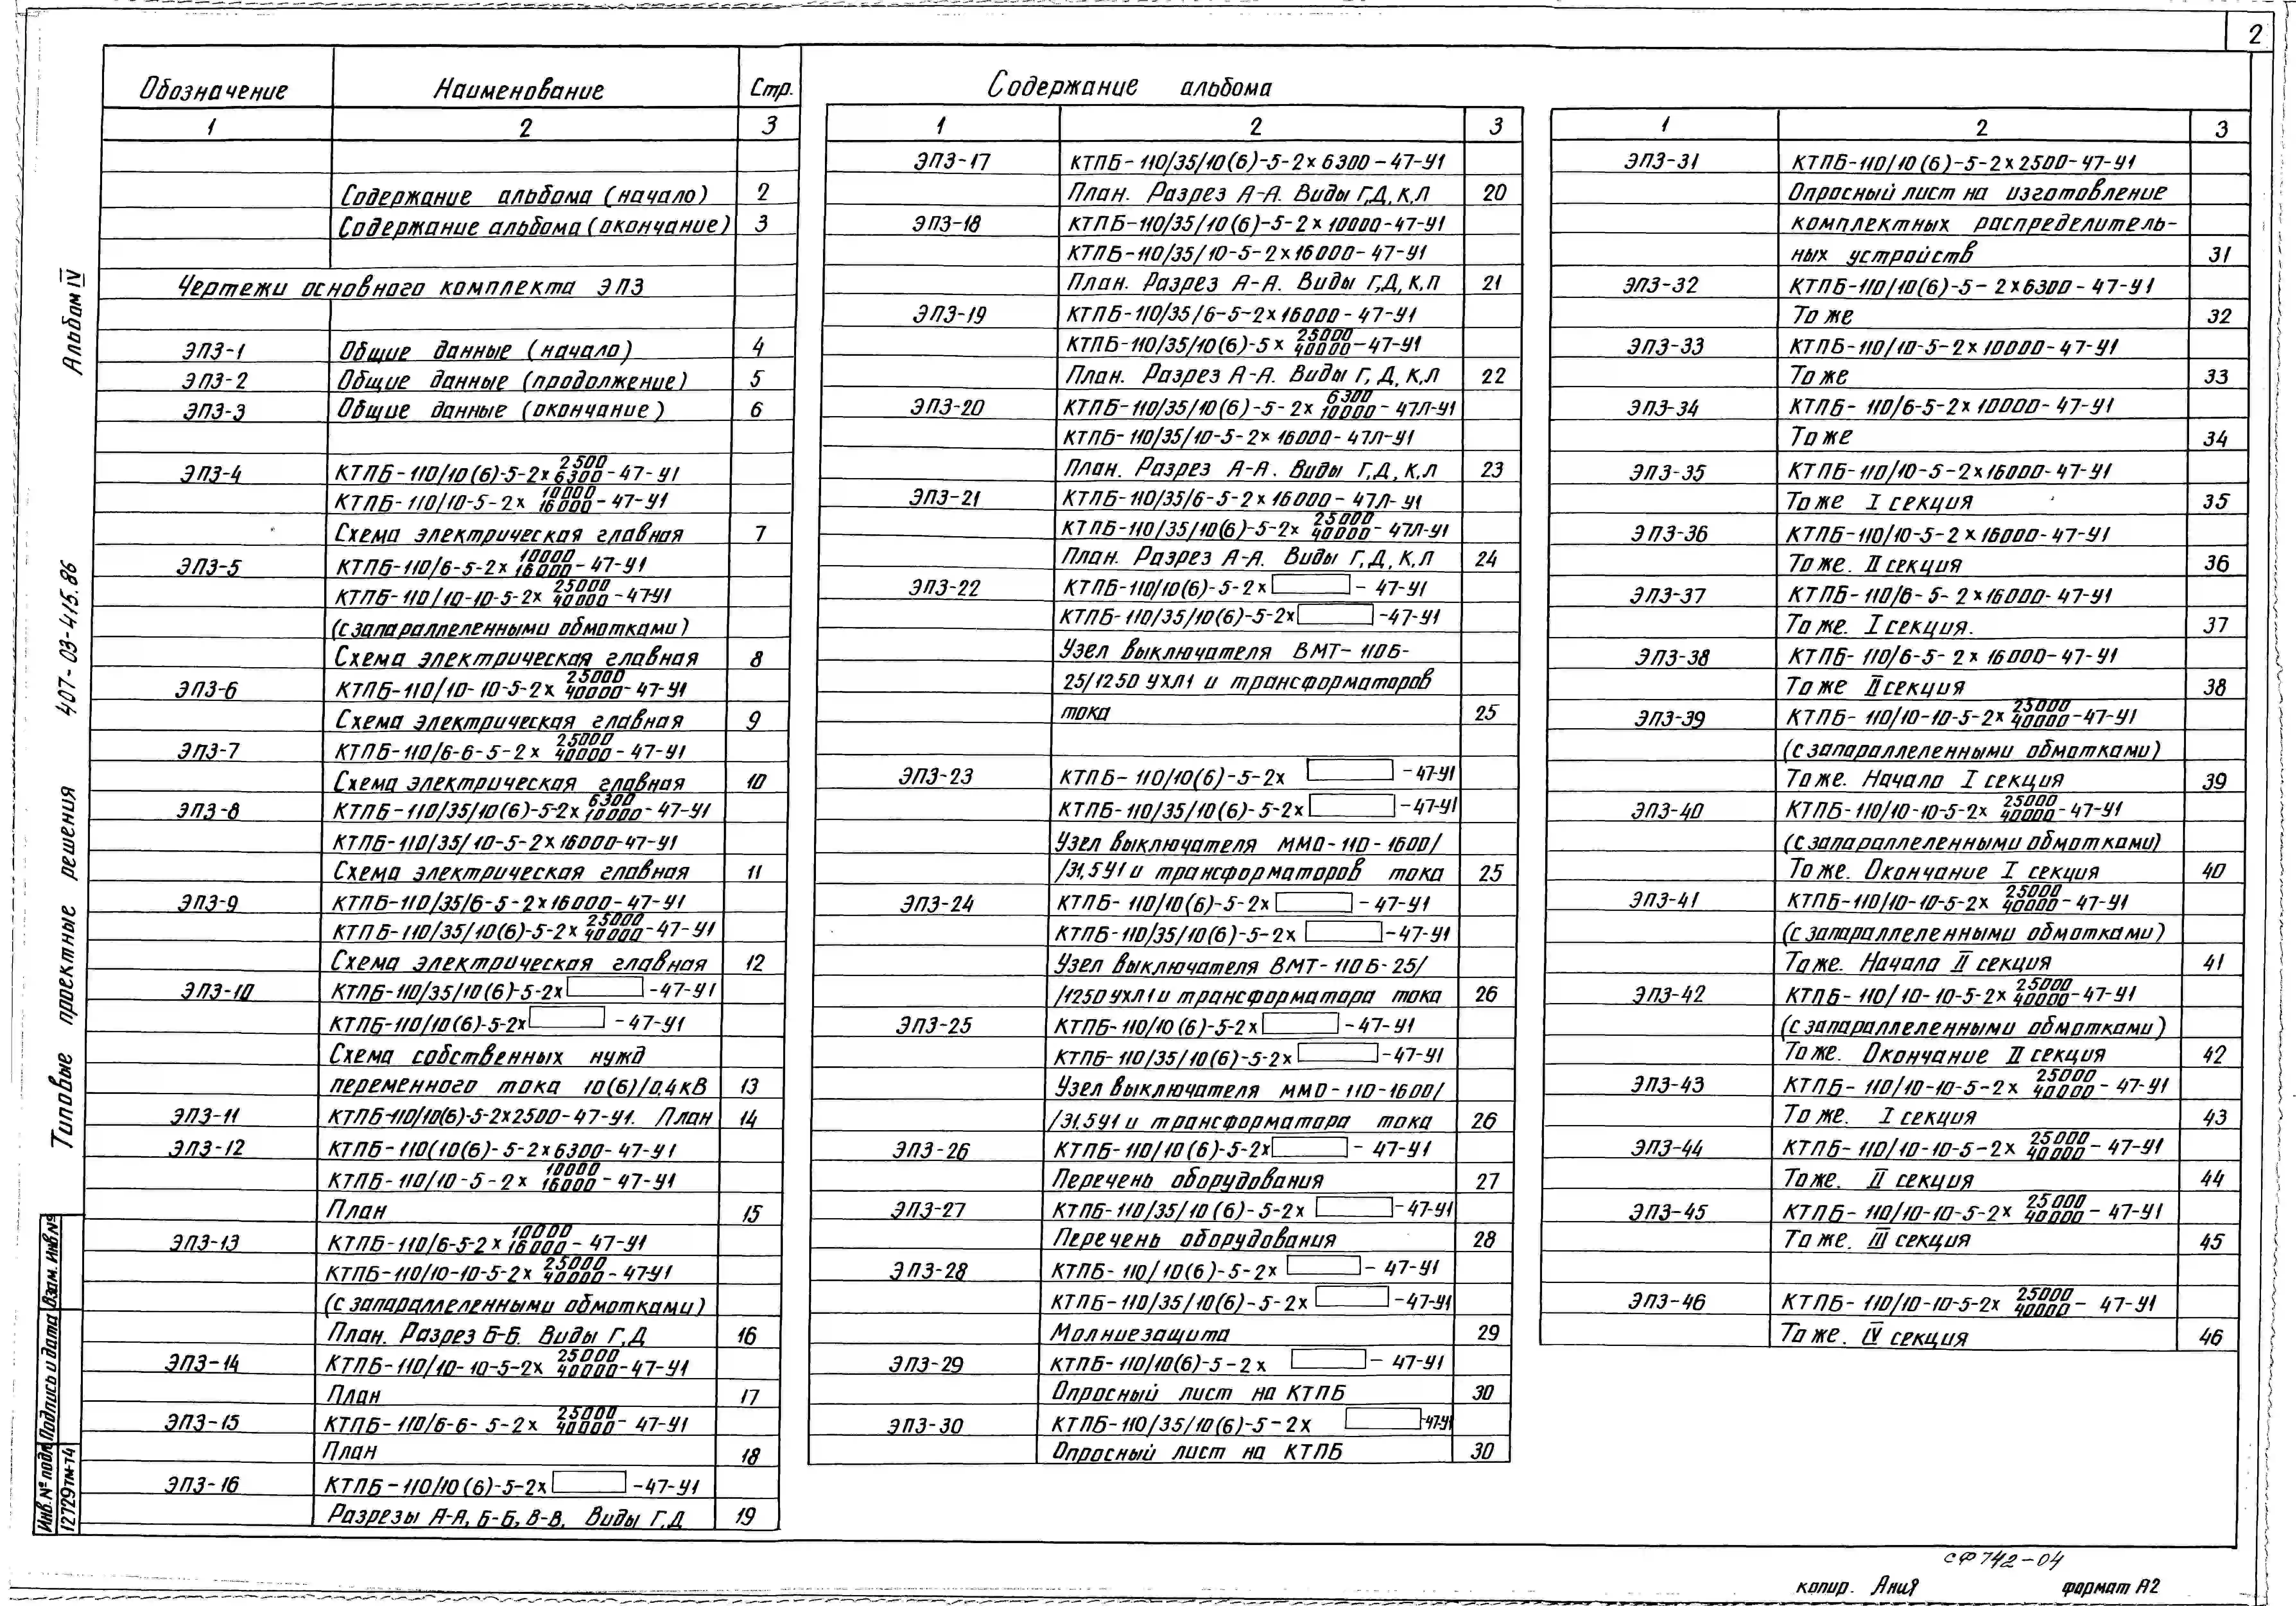 2
Содержание альбома
Обозначение Наименование Стр.
1 2 3
Содержание альбома (начало) 2
Содержание альбома (окончание) 3
Чертежи основного комплекта ЭПЗ
ЭПЗ-1 Общие данные (начало) 4
ЭПЗ-2 Общие данные (продолжение) 5
ЭПЗ-3 Общие данные (окончание) 6
ЭПЗ-4 КТПБ-110/10(6)-5-2х 2500/6300-47-У1
КТПБ-110/10-5-2х 10000/16000-47-У1
Схема электрическая главная 7
ЭПЗ-5 КТПБ-110/6-5-2х 10000/16000-47-У1
КТПБ-110/10-10-5-2х 25000/40000-47-У1
(с запараллеленными обмотками)
Схема электрическая главная 8
ЭПЗ-6 КТПБ-110/10-10-5-2х 25000/40000-47-У1
Схема электрическая главная 9
ЭПЗ-7 КТПБ-110/6-6-5-2х 25000/40000-47-У1
Схема электрическая главная 10
ЭПЗ-8 КТПБ-110/35/10(6)-5-2х 6300/10000-47-У1
КТПБ-110/35/10-5-2х16000-47-У1
Схема электрическая главная 11
ЭПЗ-9 КТПБ-110/35/6-5-2х16000-47-У1
КТПБ-110/35/10(6)-5-2х 25000/40000-47-У1
Схема электрическая главная 12
ЭПЗ-10 КТПБ-110/35/10(6)-5-2х -47-У1
КТПБ-110/10(6)-5-2х -47-У1
Схема собственных нужд
переменного тока 10(6)/0,4кВ 13
ЭПЗ-11 КТПБ-110/10(6)-5-2х2500-47-У1. План 14
ЭПЗ-12 КТПБ-110(10(6)-5-2х6300-47-У1
КТПБ-110/10-5-2х 10000/16000-47-У1
План 15
ЭПЗ-13 КТПБ-110/6-5-2х 10000/16000-47-У1
КТПБ-110/10-10-5-2х 25000/40000-47-У1
(с запараллеленными обмотками)
План. Разрез Б-Б. Виды Г,Д 16
ЭПЗ-14 КТПБ-110/10-10-5-2х 25000/40000-47-У1
План 17
ЭПЗ-15 КТПБ-110/6-6-5-2х 25000/40000-47-У1
План 18
ЭПЗ-16 КТПБ-110/10(6)-5-2х -47-У1
Разрезы А-А, Б-Б, В-В. Виды Г,Д 19
1 2 3
ЭПЗ-17 КТПБ-110/35/10(6)-5-2х6300-47-У1
План. Разрез А-А. Виды Г,Д,К,Л 20
ЭПЗ-18 КТПБ-110/35/10(6)-5-2х10000-47-У1
КТПБ-110/35/10-5-2х16000-47-У1
План. Разрез А-А. Виды Г,Д,К,Л 21
ЭПЗ-19 КТПБ-110/35/6-5-2х16000-47-У1
КТПБ-110/35/10(6)-5х 25000/40000-47-У1
План. Разрез А-А. Виды Г,Д,К,Л 22
ЭПЗ-20 КТПБ-110/35/10(6)-5-2х 6300/10000-47Л-У1
КТПБ-110/35/10-5-2х16000-47Л-У1
План. Разрез А-А. Виды Г,Д,К,Л 23
ЭПЗ-21 КТПБ-110/35/6-5-2х16000-47Л-У1
КТПБ-110/35/10(6)-5-2х 25000/40000-47Л-У1
План. Разрез А-А. Виды Г,Д,К,Л 24
ЭПЗ-22 КТПБ-110/10(6)-5-2х -47-У1
КТПБ-110/35/10(6)-5-2х -47-У1
Узел выключателя ВМТ-110Б-
25/1250 УХЛ1 и трансформаторов
тока 25
ЭПЗ-23 КТПБ-110/10(6)-5-2х -47-У1
КТПБ-110/35/10(6)-5-2х -47-У1
Узел выключателя ММО-110-1600/
/31,5У1 и трансформаторов тока 25
ЭПЗ-24 КТПБ-110/10(6)-5-2х -47-У1
КТПБ-110/35/10(6)-5-2х -47-У1
Узел выключателя ВМТ-110Б-25/
/1250УХЛ1 и трансформатора тока 26
ЭПЗ-25 КТПБ-110/10(6)-5-2х -47-У1
КТПБ-110/35/10(6)-5-2х -47-У1
Узел выключателя ММО-110-1600/
/31,5У1 и трансформатора тока 26
ЭПЗ-26 КТПБ-110/10(6)-5-2х -47-У1
Перечень оборудования 27
ЭПЗ-27 КТПБ-110/35/10(6)-5-2х -47-У1
Перечень оборудования 28
ЭПЗ-28 КТПБ-110/10(6)-5-2х -47-У1
КТПБ-110/35/10(6)-5-2х -47-У1
Молниезащита 29
ЭПЗ-29 КТПБ-110/10(6)-5-2х -47-У1
Опросный лист на КТПБ 30
ЭПЗ-30 КТПБ-110/35/10(6)-5-2х -47-У1
Опросный лист на КТПБ 30
1 2 3
ЭПЗ-31 КТПБ-110/10(6)-5-2х2500-47-У1
Опросный лист на изготовление
комплектных распределитель-
ных устройств 31
ЭПЗ-32 КТПБ-110/10(6)-5-2х6300-47-У1
То же 32
ЭПЗ-33 КТПБ-110/10-5-2х10000-47-У1
То же 33
ЭПЗ-34 КТПБ-110/6-5-2х10000-47-У1
То же 34
ЭПЗ-35 КТПБ-110/10-5-2х16000-47-У1
То же I секция 35
ЭПЗ-36 КТПБ-110/10-5-2х16000-47-У1
То же. II секция 36
ЭПЗ-37 КТПБ-110/6-5-2х16000-47-У1
То же. I секция. 37
ЭПЗ-38 КТПБ-110/6-5-2х16000-47-У1
То же II секция 38
ЭПЗ-39 КТПБ-110/10-10-5-2х 25000/40000-47-У1
(с запараллеленными обмотками)
То же. Начало I секция 39
ЭПЗ-40 КТПБ-110/10-10-5-2х 25000/40000-47-У1
(с запараллеленными обмотками)
То же. Окончание I секция 40
ЭПЗ-41 КТПБ-110/10-10-5-2х 25000/40000-47-У1
(с запараллеленными обмотками)
То же. Начало II секция 41
ЭПЗ-42 КТПБ-110/10-10-5-2х 25000/40000-47-У1
(с запараллеленными обмотками)
То же. Окончание II секция 42
ЭПЗ-43 КТПБ-110/10-10-5-2х 25000/40000-47-У1
То же. I секция 43
ЭПЗ-44 КТПБ-110/10-10-5-2х 25000/40000-47-У1
То же. II секция 44
ЭПЗ-45 КТПБ-110/10-10-5-2х 25000/40000-47-У1
То же. III секция 45
ЭПЗ-46 КТПБ-110/10-10-5-2х 25000/40000-47-У1
То же. IV секция 46
Типовые проектные решения 407-03-415.86 Альбом IV
Взам. инв.№
Подпись и дата
Инв.№ подл.
12729тм-т4
СФ742-04
копир. формат А2